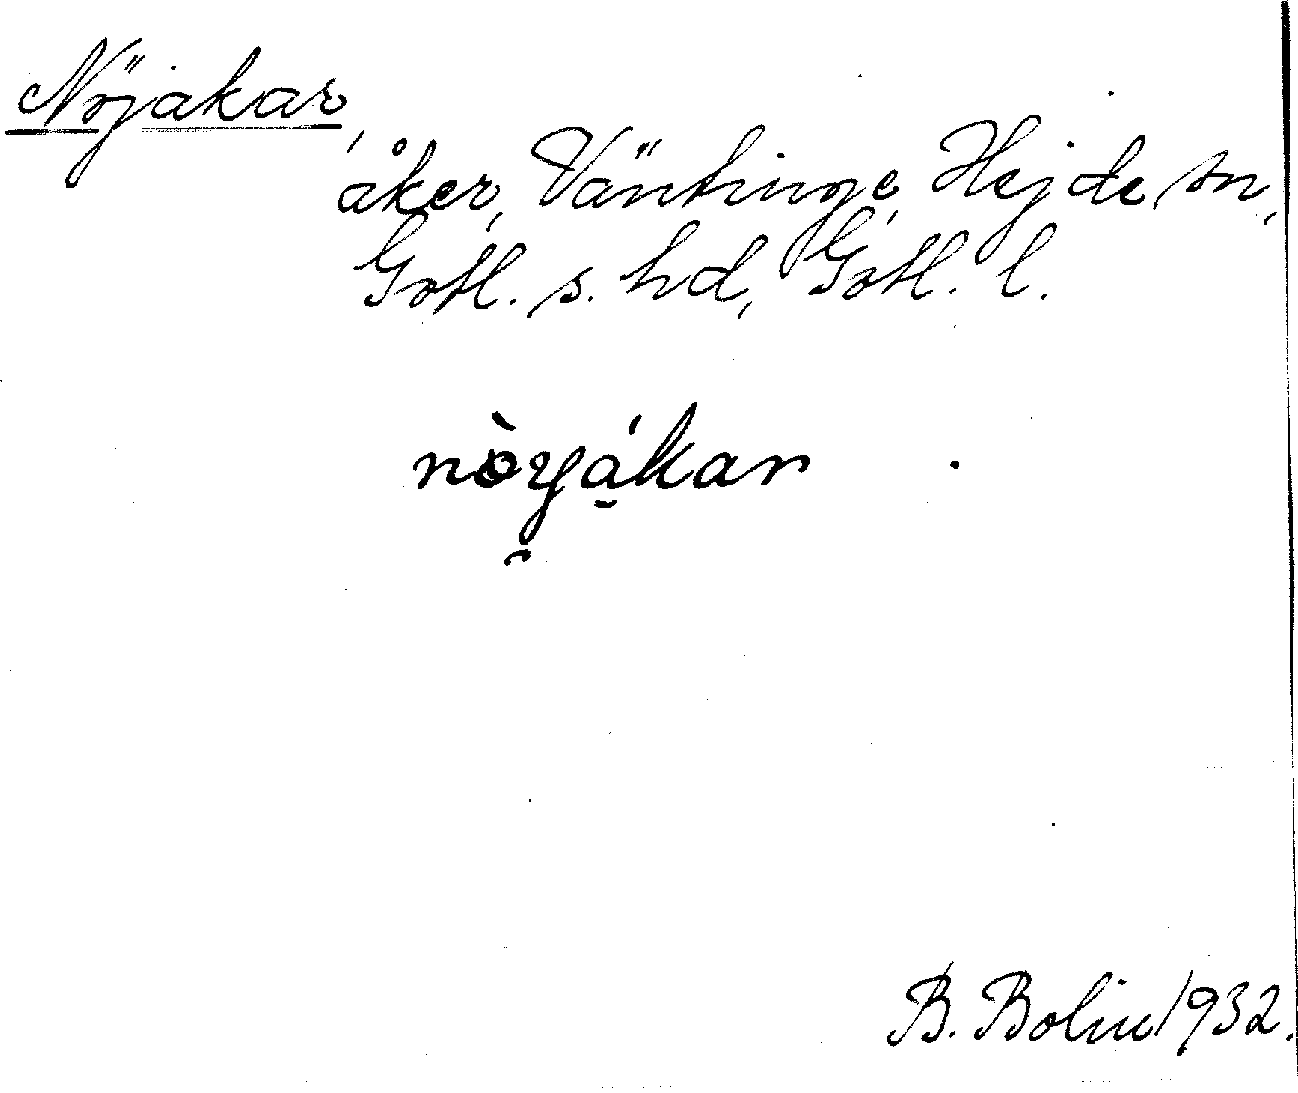 Nöjakar,
åker, Väntinge, Hejde sn,
Gotl. s. hd, Gotl. l.
nòyákar
B. Bolin 1932.